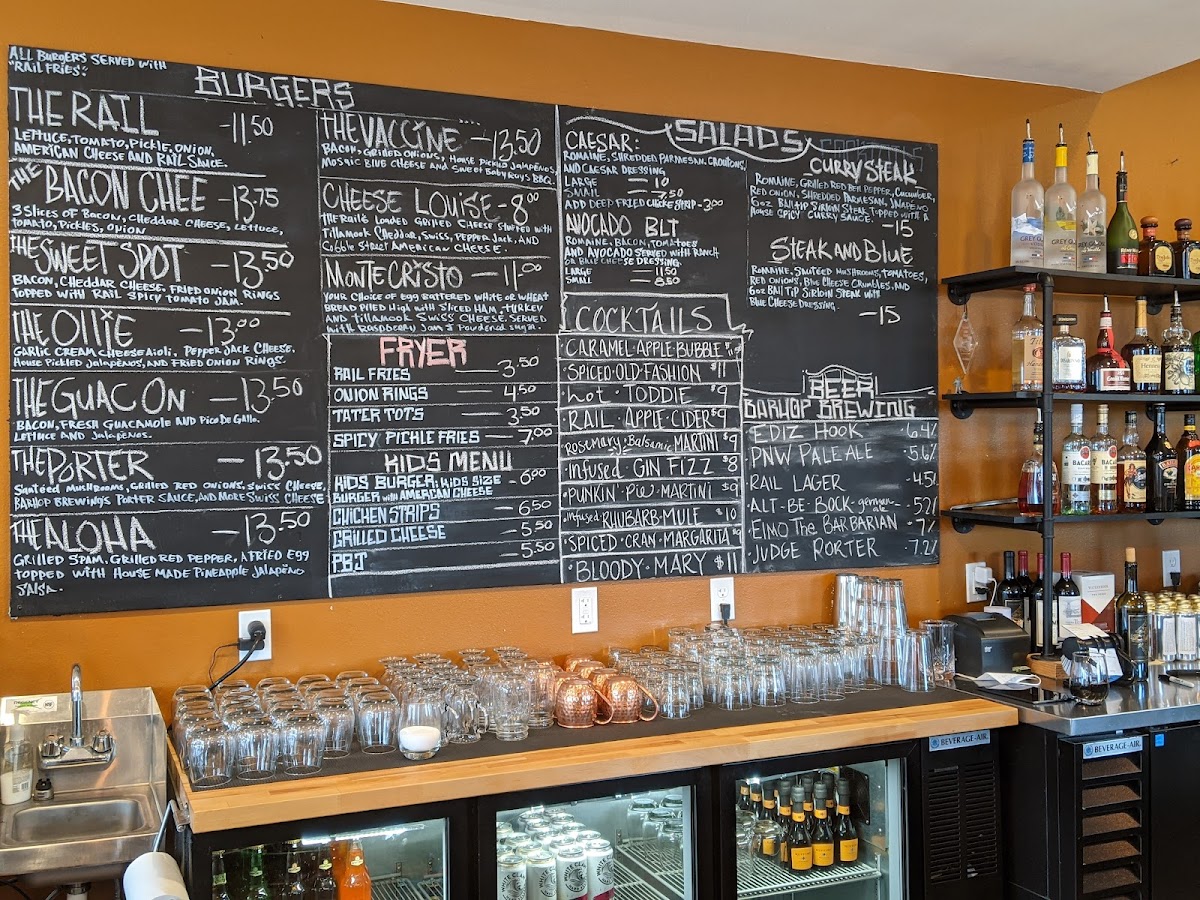 ALL BURGERS SERVED WITH
"RAIL FRIES".
BURGERS
THE RAIL -11.50
LETTUCE, TOMATO, PICKLE, ONION,
AMERICAN CHEESE AND RAIL SAUCE.
THE BACON CHEE -13.75
3 SLICES OF BACON, CHEDDAR CHEESE, LETTUCE,
TOMATO, PICKLES, ONION
THE SWEET SPOT -13.50
BACON, CHEDDAR CHEESE, FRIED ONION RINGS
TOPPED WITH RAIL SPICY TOMATO JAM.
THE OLLIE -13.00
GARLIC CREAM CHEESE AIOLI, PEPPER JACK CHEESE,
HOUSE PICKLED JALAPEÑOS, AND FRIED ONION RINGS.
THE GUAC ON -13.50
BACON, FRESH GUACAMOLE AND PICO DE GALLO.
LETTUCE AND JALAPENOS.
THE PORTER -13.50
SAUTEED MUSHROOMS, GRILLED RED ONIONS, SWISS CHEESE,
BARHOP BREWING'S PORTER SAUCE, AND MORE SWISS CHEESE
THE ALOHA -13.50
GRILLED SPAM, GRILLED RED PEPPER, A FRIED EGG
TOPPED WITH HOUSE MADE PINEAPPLE JALAPEÑO
SALSA.
THE VACCINE -13.50
BACON, GRILLED ONIONS, HOUSE PICKLED JALAPEÑOS,
MOSAIC BLUE CHEESE AND SWEET BABY RAYS BBQ.
CHEESE LOUISE -8.00
THE RAILS LOADED GRILLED CHEESE STUFFED WITH
TILLAMOOK CHEDDAR, SWISS, PEPPER JACK, AND
COBBLE STREET AMERICAN CHEESE.
MONTE CRISTO -11.00
YOUR CHOICE OF EGG BATTERED WHITE OR WHEAT
BREAD PILED HIGH WITH SLICED HAM, TURKEY
AND TILLAMOOK SWISS CHEESE. SERVED
WITH RASPBERRY JAM & POWDERED SUGAR.
FRYER
RAIL FRIES 3.50
ONION RINGS 4.50
TATER TOTS 3.50
SPICY PICKLE FRIES 7.00
KIDS MENU
KIDS BURGER, KIDS SIZE
BURGER WITH AMERICAN CHEESE -6.00
CHICKEN STRIPS -6.50
GRILLED CHEESE -5.50
PBJ -5.50
SALADS
CAESAR:
ROMAINE, SHREDDED PARMESAN, CROUTONS,
AND CAESAR DRESSING
LARGE — 10
SMALL — 7.50
ADD DEEP FRIED CHICKEN STRIP -3.00
AVOCADO BLT
ROMAINE, BACON, TOMATOES
AND AVOCADO SERVED WITH RANCH
OR BLUE CHEESE DRESSING.
LARGE — 11.50
SMALL — 8.50
COCKTAILS
·CARAMEL·APPLE·BUBBLE
·SPICED·OLD·FASHION $11
·HOT·TODDIE $9
·RAIL·APPLE·CIDER $9
·ROSEMARY·BALSAMIC MARTINI $9
·INFUSED·GIN FIZZ $8
·PUNKIN·PIE·MARTINI $9
·INFUSED·RHUBARB·MULE $10
·SPICED·CRAN·MARGARITA $9
·BLOODY·MARY $11
CURRY STEAK
ROMAINE, GRILLED RED BELL PEPPER, CUCUMBER,
RED ONION, SHREDDED PARMESAN, JALAPEÑO
6OZ BALLTIP SIRLOIN STEAK TOPPED WITH A
HOUSE SPICY CURRY SAUCE.
-15
STEAK AND BLUE
ROMAINE, SAUTEED MUSHROOMS, TOMATOES,
RED ONIONS, BLUE CHEESE CRUMBLES, AND
6OZ BALLTIP SIRLOIN STEAK WITH
BLUE CHEESE DRESSING.
-15
BEER!
BARHOP BREWING
·EDIZ HOOK ·6.4%
·PNW PALE ALE ·5.6%
·RAIL LAGER ·4.5%
·ALT-BE-BOCK-GERMAN ALE ·5.2%
·EINO THE BARBARIAN ·7%
·JUDGE PORTER ·7.2%
GREY GOOSE
BACARDI
BACARDI
Hennessy
BEVERAGE-AIR
BEVERAGE-AIR
WHITE CLAW